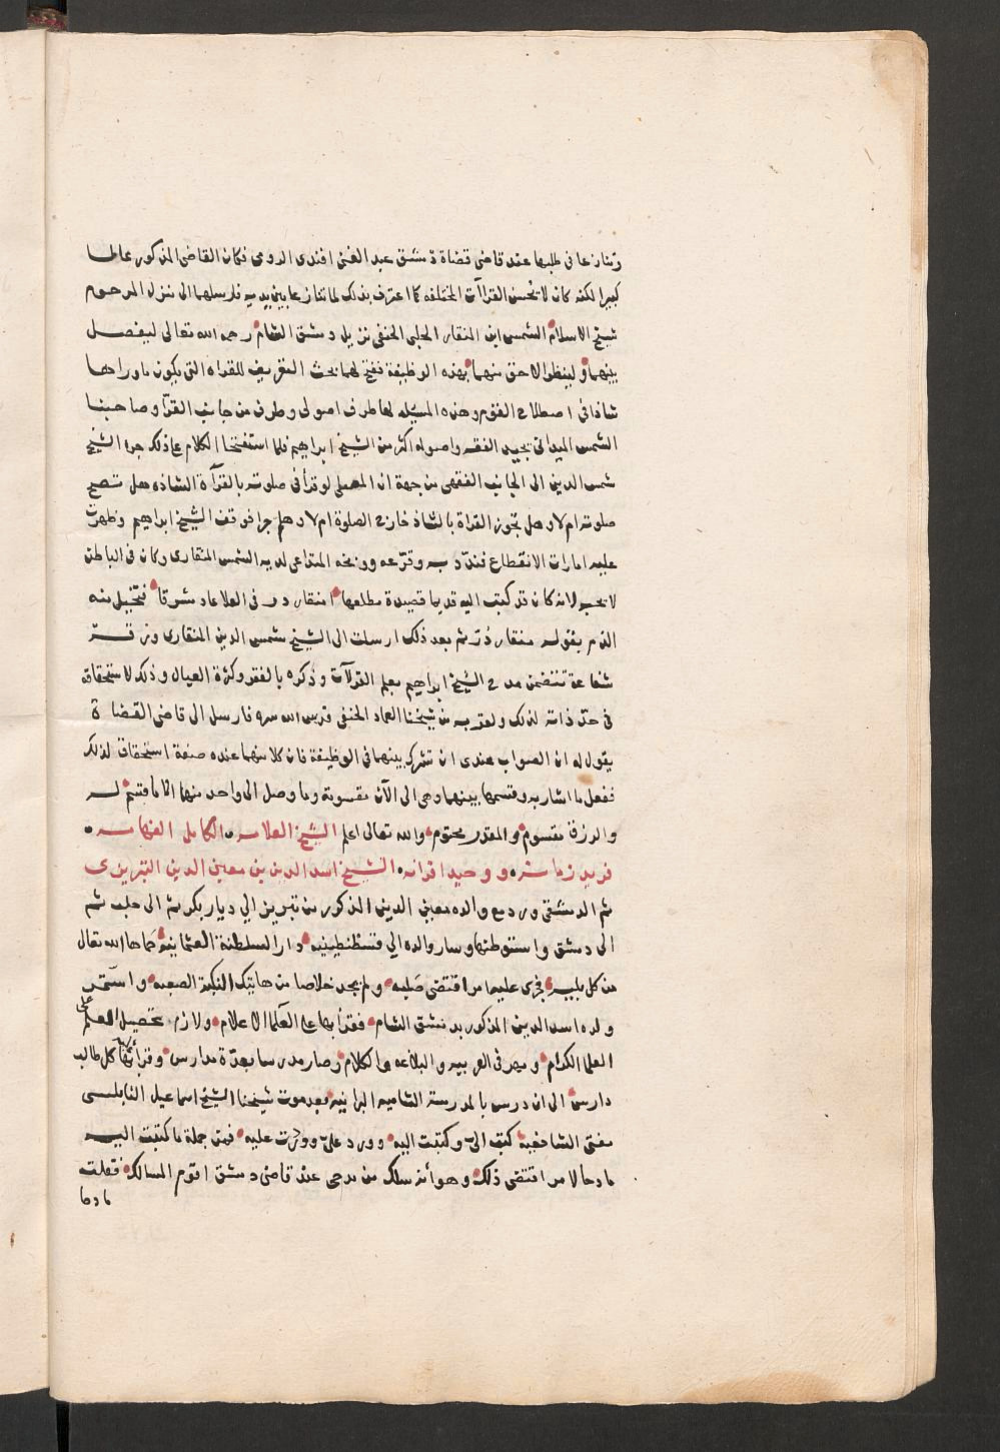 وتنازعا فى طلبها عند قاضى قضاة دمشق عبد الغنى افندى الرومى فكان القاضى المذكور عالما
كبيرا لكنه كان لا يحسن القراآت المختلفه كما اعترف بذلك لما تنازعا بين يديه فارسلهما الى منزل المرحوم
شيخ الاسلام الشمس ابن المنقار الحلبى الحنفى نزيل دمشق الشام رحمه الله تعالى ليفصل
بينهما ولينظر الاحق منهما بهذه الوظيفة ففتح لهما بحث التعريف للقراه التى يكون ماوراها
شاذا فى اصطلاح القوم وهذه المسئله لها طرف اصولى وطرف من جانب القرا وصاحبنا
الشمس الميدانى يجيد الفقه واصوله اكثر من الشيخ ابراهيم فلما استفتحا الكلام على ذلك جره الشيخ
شمس الدين الى الجانب الفقهى من جهة ان المصلى لو قرأ فى صلوته بالقرآة الشاذه هل تصح
صلوته ام لا وهل تجوز القراة بالشاذ خارج الصلوة ام لا وهلم جرا فوقف الشيخ ابراهيم وظهرت
عليه امارات الانقطاع فندد به وقرعه ووبخه المتداعى لديه الشمس المنقارى وكان فى الباطن
لا يحبه لانه كان قد كتب اليه قديما قصيدة مطلعها امنقار در فى العلا عاد مشرقا فتخيل منه
الذم بقوله منقار در ثم بعد ذلك ارسلت الى الشيخ شمس الدين المنقارى ورقة
شفاعة تتضمن مدح الشيخ ابراهيم بعلم القرآآت وذكره بالفقر وكثرة العيال وذلك لاستحقاقه
فى حد ذاته لذلك ولقربه من شيخنا العماد الحنفى قدس الله سره فارسل الى قاضى القضاة
يقول له ان الصواب عندى ان تشرك بينهما فى الوظيفة فان كلا منهما عنده صفة استحقاق لذلك
ففعل ما اشار به وقسمها بينهما وهى الى الآن مقسومة وما وصل الى واحد منهما الا ما قسم له
والرزق مقسوم والمقدور محتوم والله تعالى اعلم الشيخ العلامه الكامل الفهامه
فريد زمانه ووحيد اقرانه الشيخ اسد الدين بن معين الدين التبريزى
ثم الدمشقى ورد مع والده معين الدين المذكور من تبريز الي ديار بكر ثم الى حلب ثم
الى دمشق واستوطنها وسار والده الي قسطنطينيه دار السلطنة العثمانيه حماها الله تعالى
من كل بليه فجرى عليه ما اقتضى صلبه ولم يجد خلاصا من هاتيك النكبة الصعبه واستمر
ولده اسد الدين المذكور بدمشق الشام فقرأ بها على العلما الاعلام ولازم تحصيل العلم على
العلما الكرام ومهر فى العربيه والبلاغه والكلام وصار مدرسا بعدة مدارس وقرأ بها كل طالب
دارس الى ان درس بالمدرسة الشاميه البرانيه بعد موت شيخنا الشيخ اسماعيل النابلسى
مفتى الشافعية كتب الىّ وكتبت اليه وورد علىّ ووردت عليه فمن جملة ما كتبت اليه
مادحا لامر اقتضى ذلك وهو أنه سلك من مدحى عند قاضى دمشق اقوم المسالك فقلت
مادحا